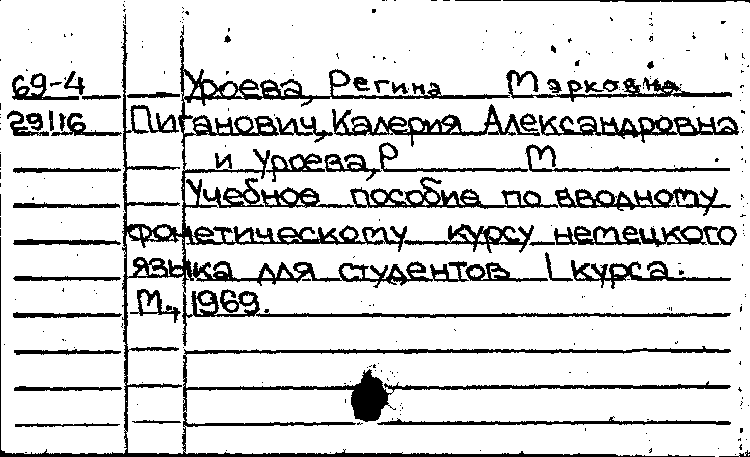 69-4 Уроева, Регина Марковна
29116 Пиганович, Калерия Александровна
и Уроева, Р М
Учебное пособие по вводному
фонетическому курсу немецкого
языка для студентов I курса.
М., 1969.